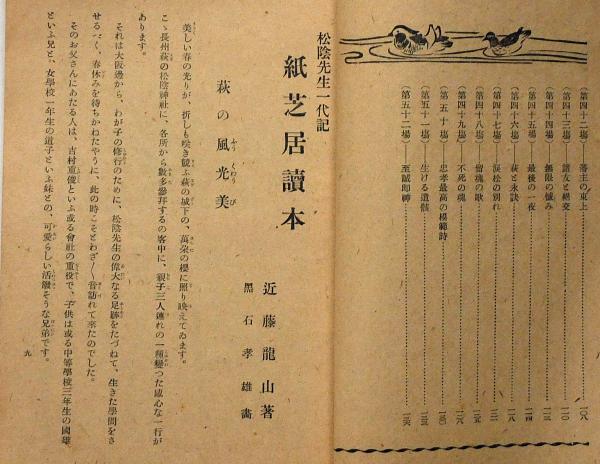 (第四十二場)――藩主の東上………一〇八
(第四十三場)――諸友と絶交………一一〇
(第四十四場)――無限の憾み
(第四十五場)――最後の一夜
(第四十六場)――萩と永訣………一一八
(第四十七場)――涙松の別れ
(第四十八場)――留魂の歌
(第四十九場)――不死の魂
(第五十場)――忠孝最高の模範詩
(第五十一場)――生ける遺骸
(第五十二場)――至誠即神
松陰先生一代記
紙芝居讀本
近藤龍山著
黒石孝雄畵
萩の風光美
美しい春の光りが、折しも咲き競ふ萩の城下の、萬朶の櫻に照り映えてゐます。
こゝ長州萩の松陰神社に、各所から數多參拜するの客中に、親子三人連れの一種變つた感心な一行が
あります。
それは大阪邊から、わが子の修行のために、松陰先生の偉大なる足跡をたづねて、生きた學問をさ
せるべく、春休みを待ちかねたやうに、此の時こそとわざ〳〵音訪れて來たのでした。
そのお父さんにあたる人は、吉村重俊といふ或る會社の重役で、子供は或る中等學校三年生の國雄
といふ兄と、女學校一年生の道子といふ妹との、可愛らしい活潑そうな兄弟です。
九